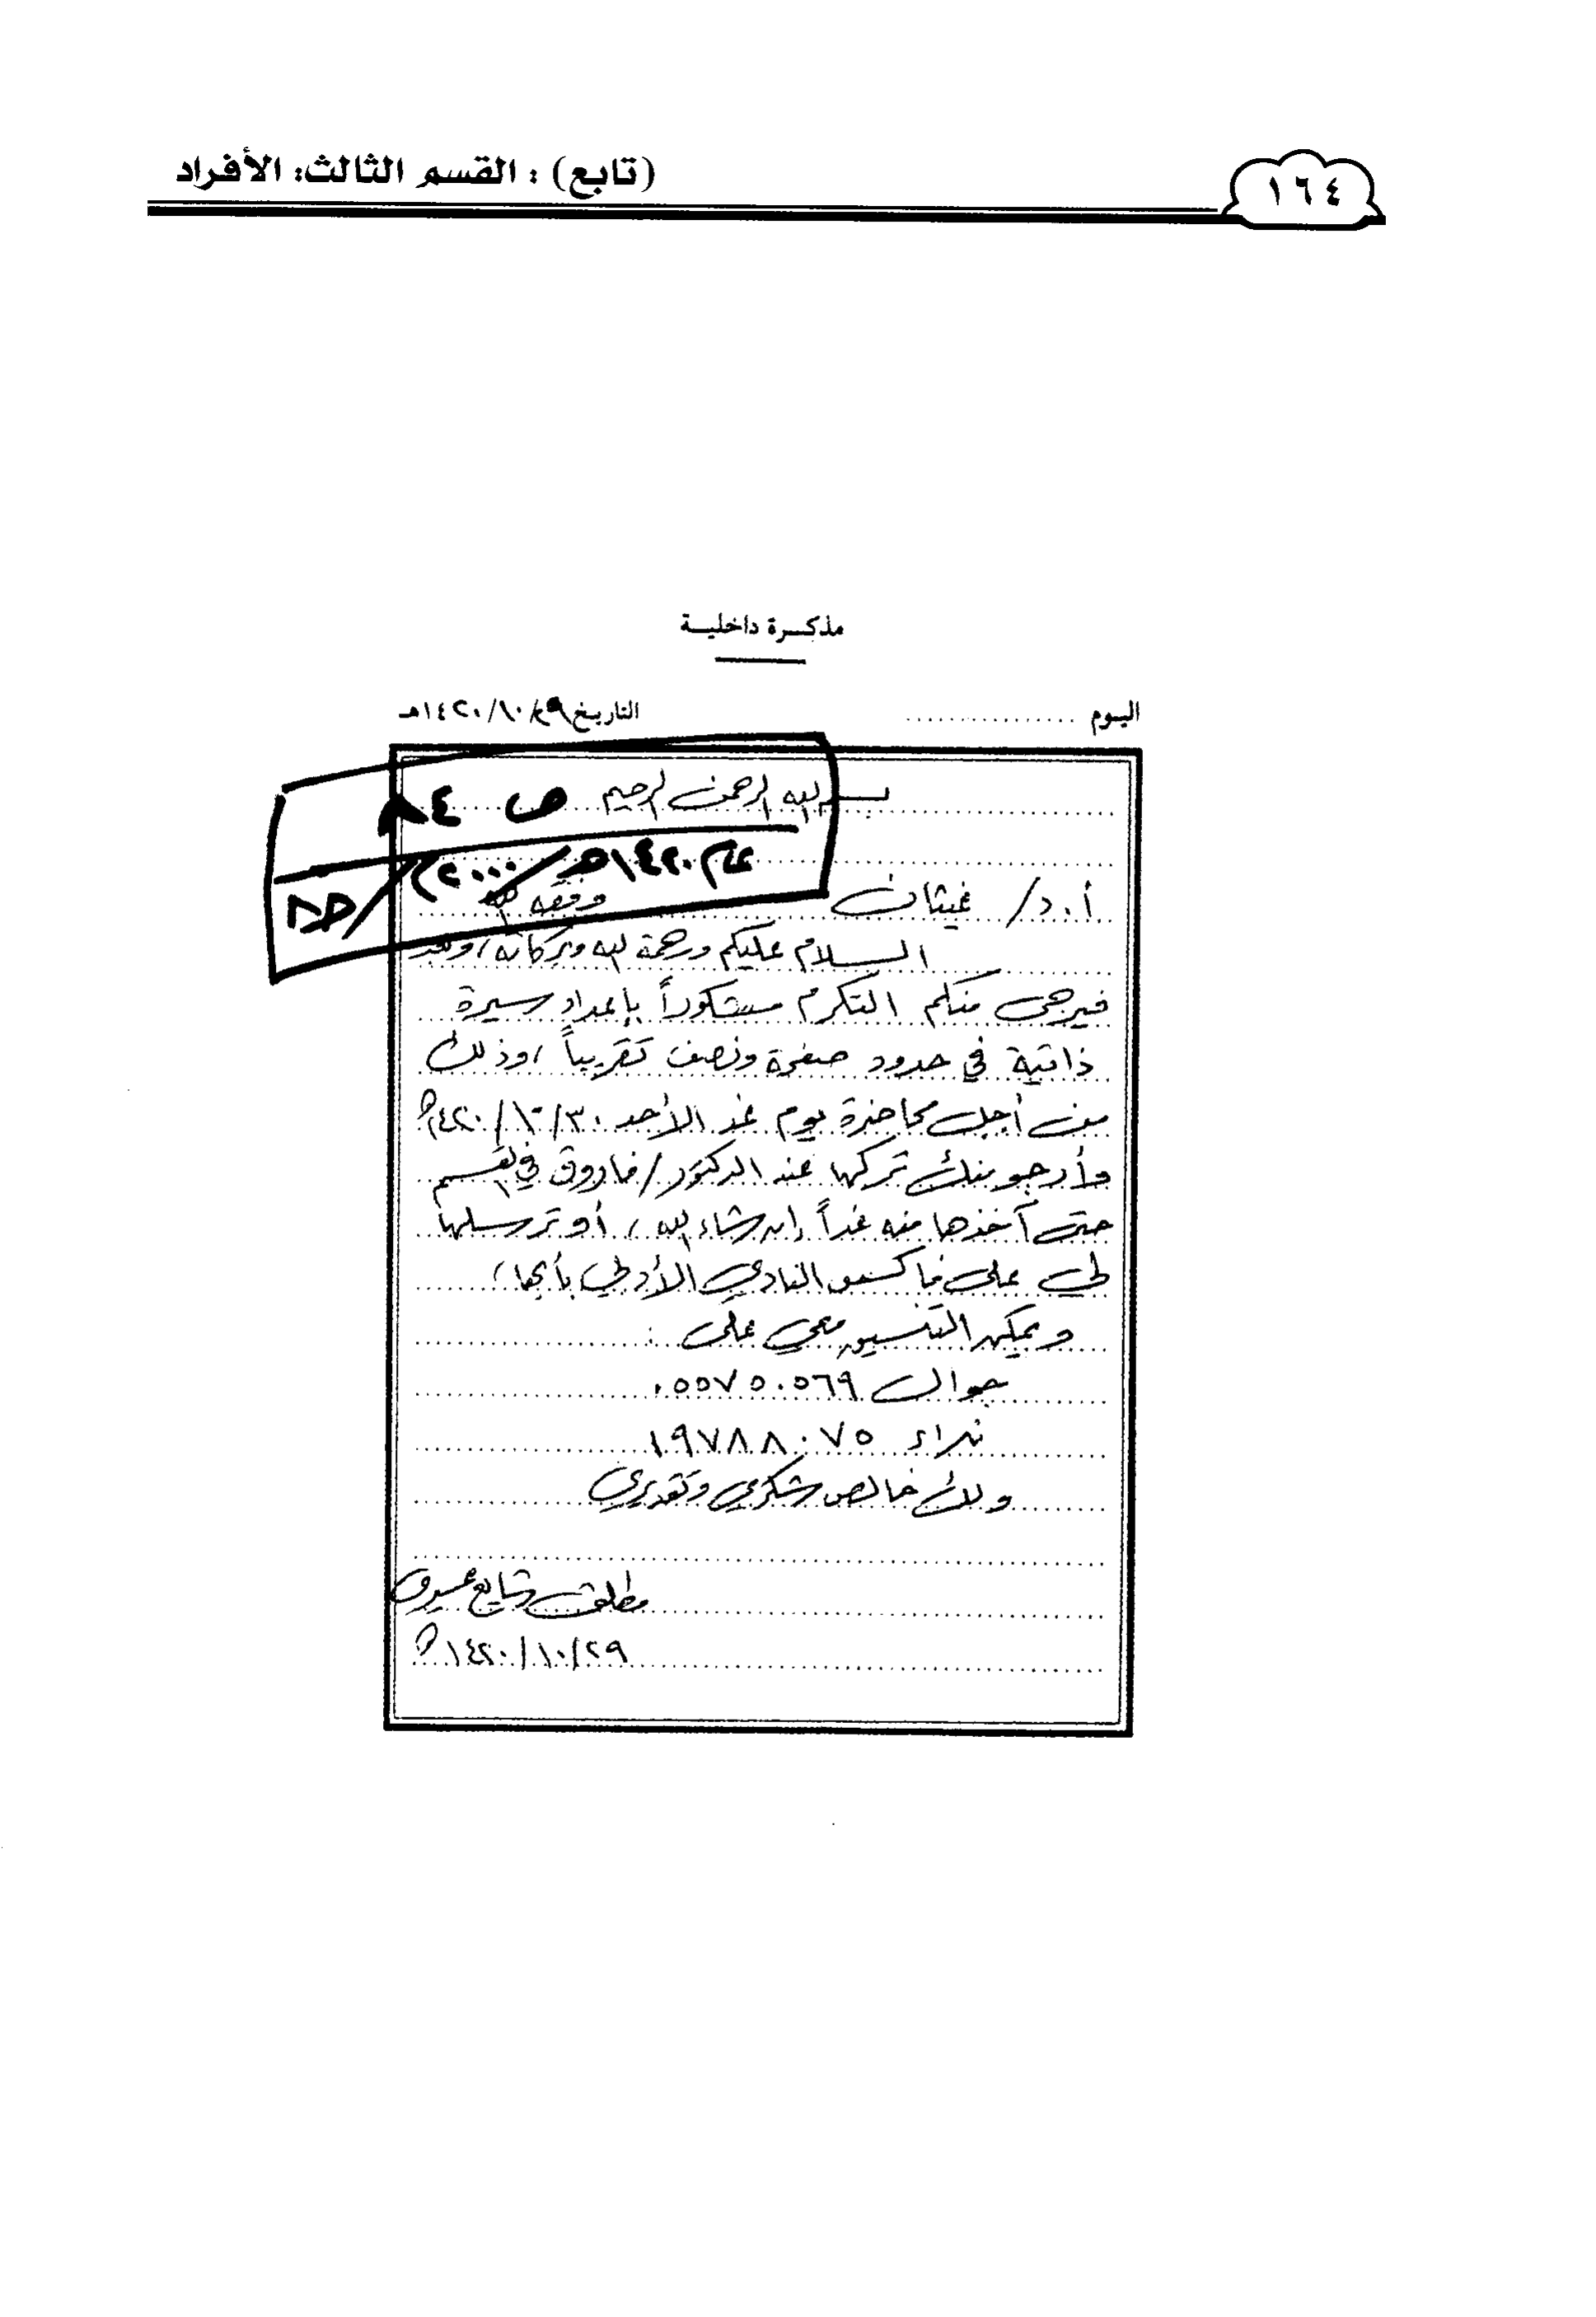 ١٦٤
(تابع) : القسم الثالث: الأفراد
مذكرة داخلية
اليوم ............... التاريخ ٢٩/١٠/١٤٢٠هـ
بسم الله الرحمن الرحيم
ص ٨٤
عام ١٤٢٠هـ/٢٠٠٠م
أ.د/ غيثان وفقه الله
السلام عليكم ورحمة الله وبركاته، وبعد
فيرجى منكم التكرم مشكوراً بإعداد سيرة
ذاتية في حدود صفحة ونصف تقريباً، وذلك
من أجل محاضرة يوم غد الأحد ٣٠/١٠/١٤٢٠هـ
وأرجو منك تركها عند الدكتور/ فاروق في القسم
حتى آخذها منه غداً إن شاء الله، أو ترسلها
لي على فاكس النادي الأدبي بأبها،
ويمكن التنسيق معي على :
جوال ٠٥٥٧٥٠٥٦٩
نداء ١٩٧٨٨٠٧٥
ولك خالص شكري وتقديري
مطلق شايع عسيري
٢٩/١٠/١٤٢٠هـ